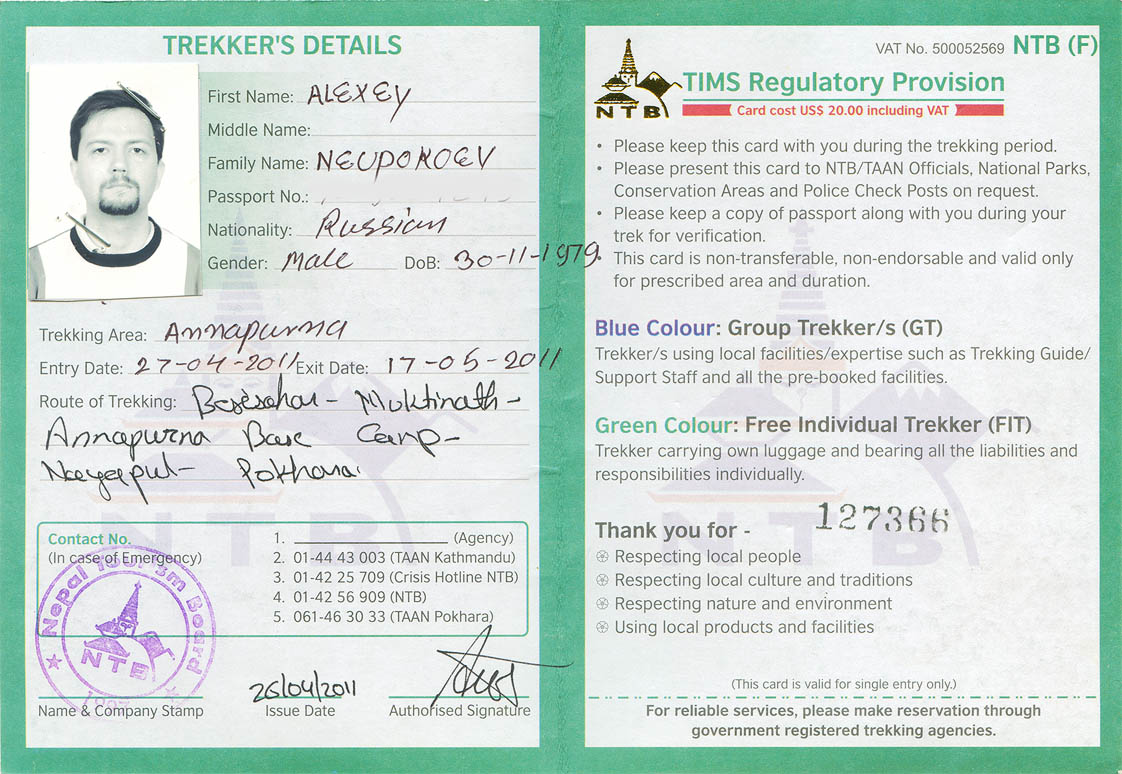 TREKKER'S DETAILS
First Name: ALEXEY
Middle Name:
Family Name: NEUPOKOEV
Passport No.:
Nationality: Russian
Gender: Male DoB: 30-11-1979.
Trekking Area: Annapurna
Entry Date: 27-04-2011 Exit Date: 17-05-2011
Route of Trekking: Besisahar - Muktinath -
Annapurna Base Camp -
Nayapul - Pokhara.
Contact No.
(In case of Emergency)
1. (Agency)
2. 01-44 43 003 (TAAN Kathmandu)
3. 01-42 25 709 (Crisis Hotline NTB)
4. 01-42 56 909 (NTB)
5. 061-46 30 33 (TAAN Pokhara)
Nepal Tourism Board
NTB
Name & Company Stamp
26/04/2011
Issue Date
Authorised Signature
VAT No. 500052569 NTB (F)
NTB
TIMS Regulatory Provision
Card cost US$ 20.00 including VAT
• Please keep this card with you during the trekking period.
• Please present this card to NTB/TAAN Officials, National Parks,
Conservation Areas and Police Check Posts on request.
• Please keep a copy of passport along with you during your
trek for verification.
• This card is non-transferable, non-endorsable and valid only
for prescribed area and duration.
Blue Colour: Group Trekker/s (GT)
Trekker/s using local facilities/expertise such as Trekking Guide/
Support Staff and all the pre-booked facilities.
Green Colour: Free Individual Trekker (FIT)
Trekker carrying own luggage and bearing all the liabilities and
responsibilities individually.
127366
Thank you for -
Respecting local people
Respecting local culture and traditions
Respecting nature and environment
Using local products and facilities
(This card is valid for single entry only.)
For reliable services, please make reservation through
government registered trekking agencies.